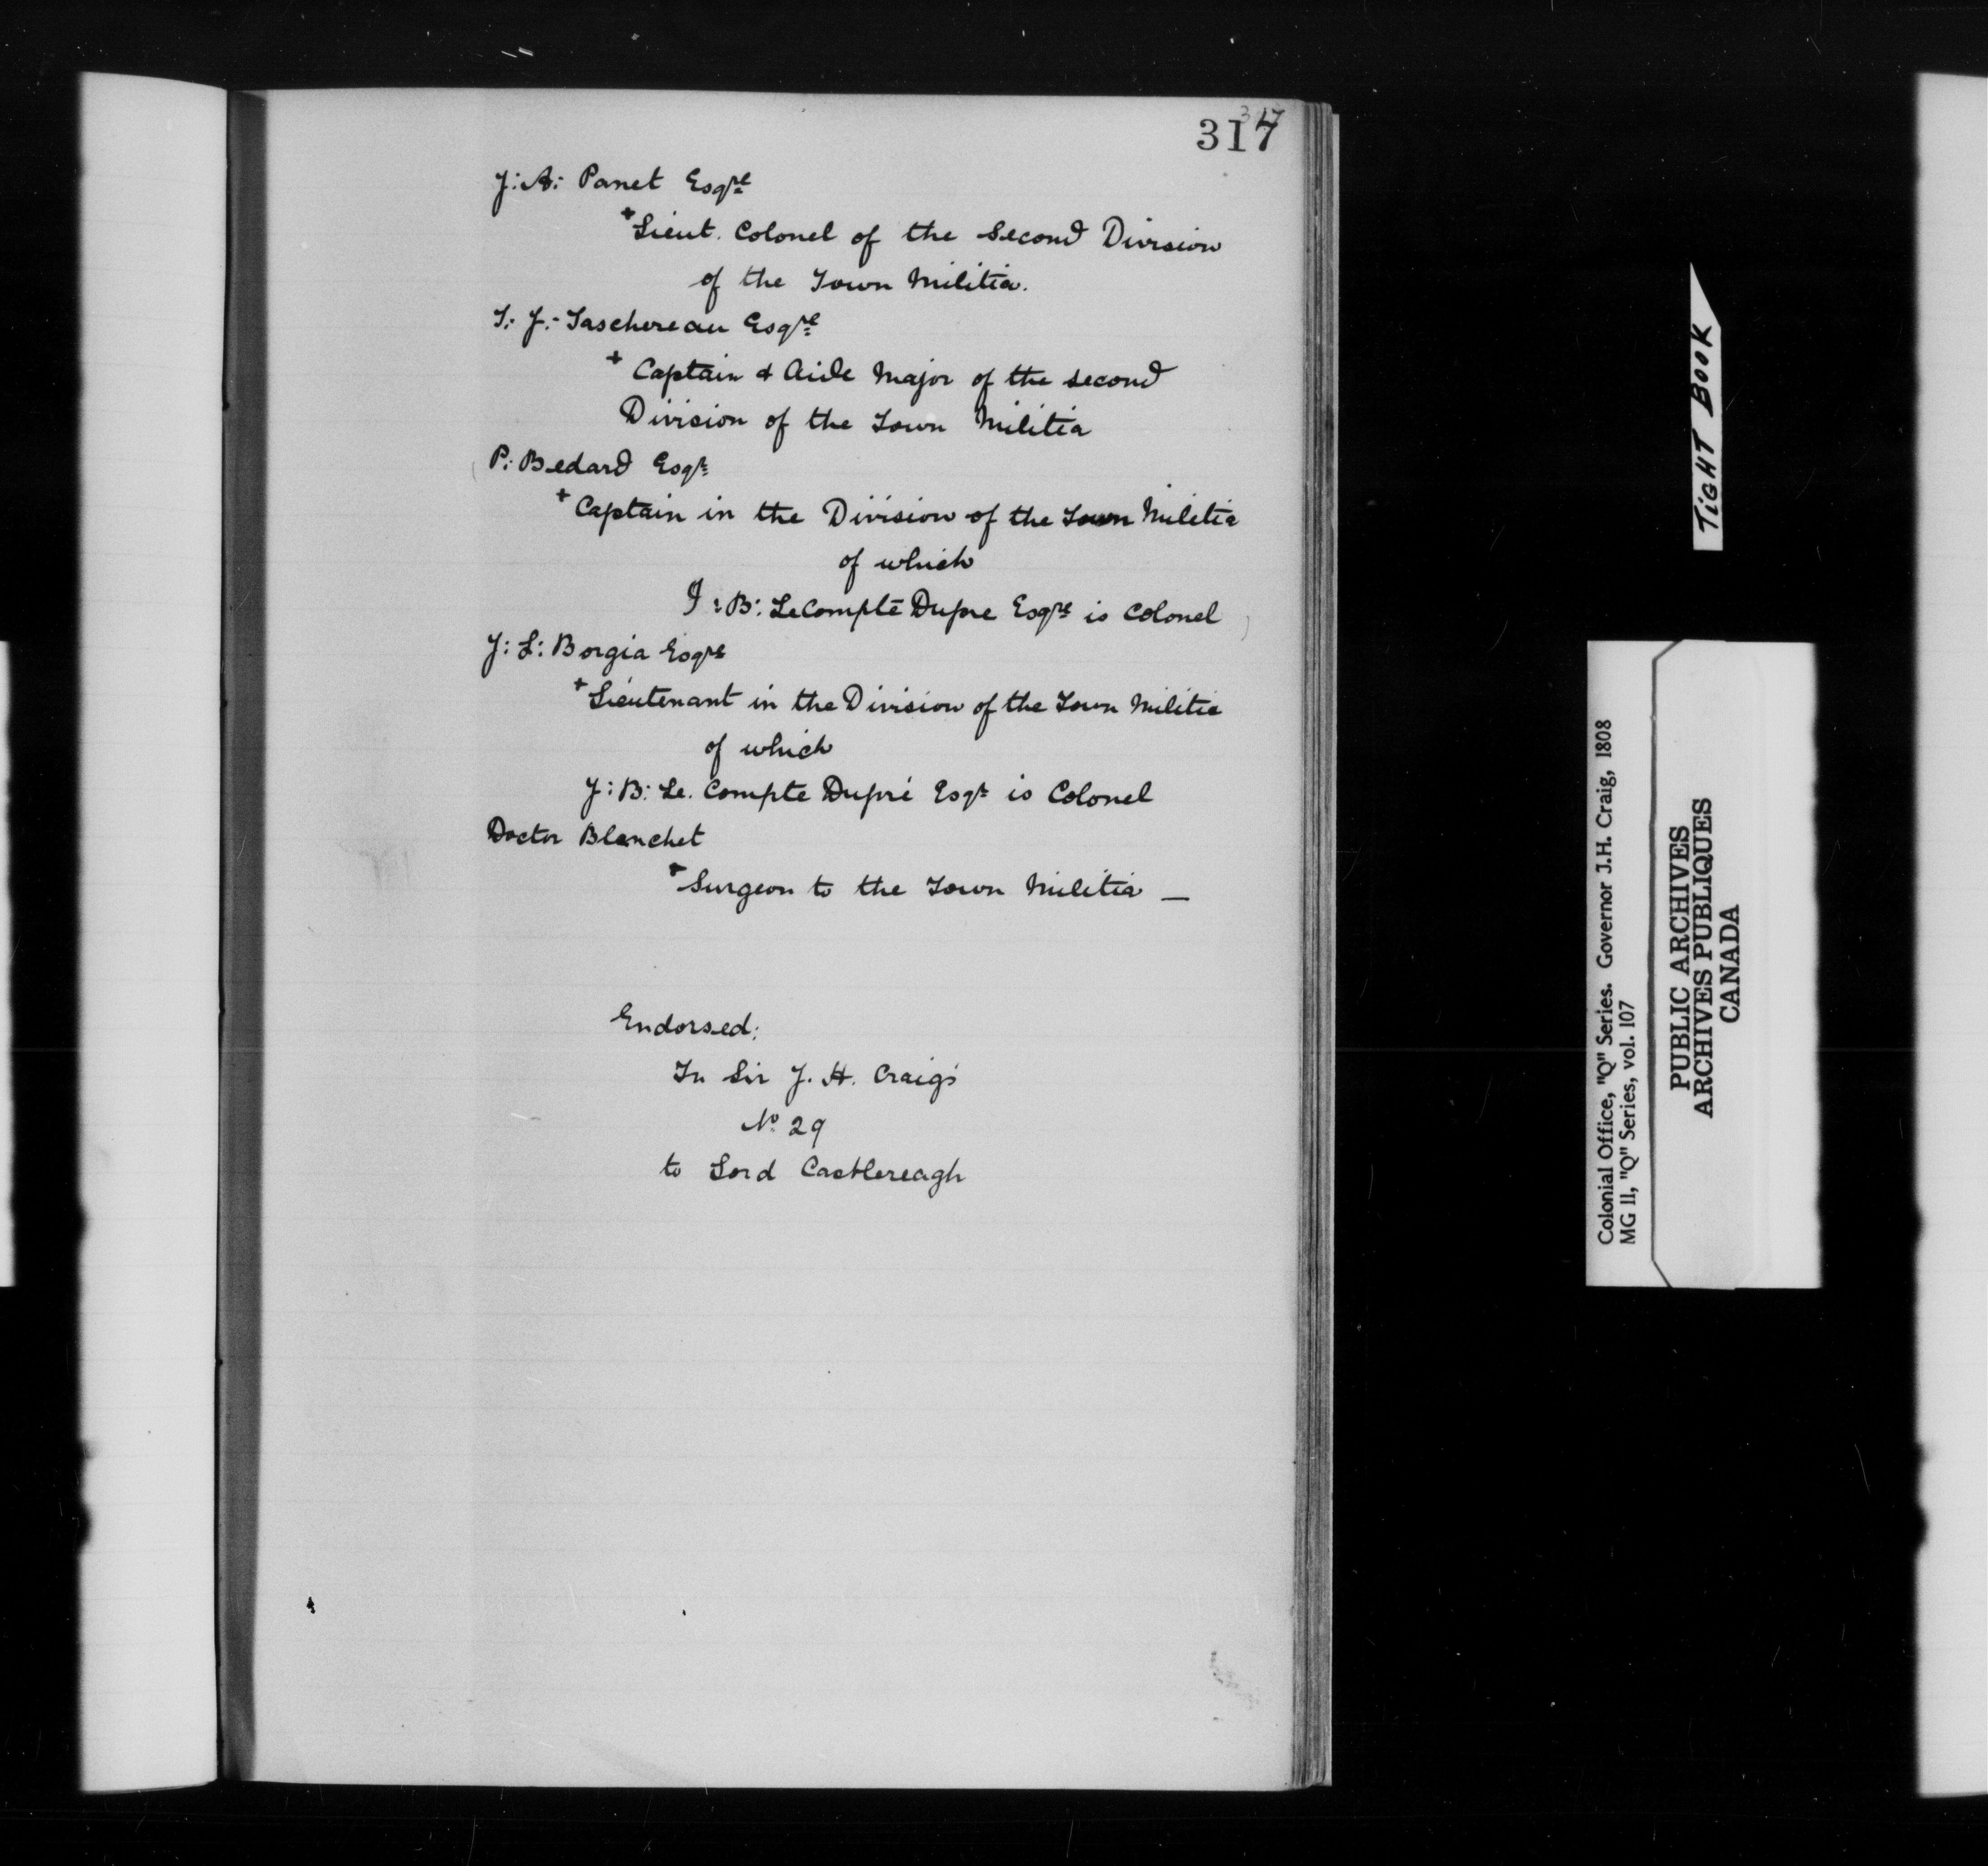 317
317
J: A: Panet Esqre
+ Lieut. Colonel of the Second Division
of the Town Militia.
T: J:- Taschereau Esqre
+ Captain & Aide Major of the second
Division of the Town Militia
P: Bedard Esqr
+ Captain in the Division of the Town Militia
of which
J: B: LeCompte Dupre Esqre is Colonel
J: L: Borgia Esqre
+ Lieutenant in the Division of the Town Militia
of which
J: B: Le. Compte Dupré Esqr is Colonel
Doctor Blanchet
+ Surgeon to the Town Militia —
Endorsed:
In Sir J. H. Craig's
No. 29
to Lord Castlereagh
TiGHT BOOK
Colonial Office, "Q" Series. Governor J.H. Craig, 1808
MG 11, "Q" Series, vol. 107
PUBLIC ARCHIVES
ARCHIVES PUBLIQUES
CANADA